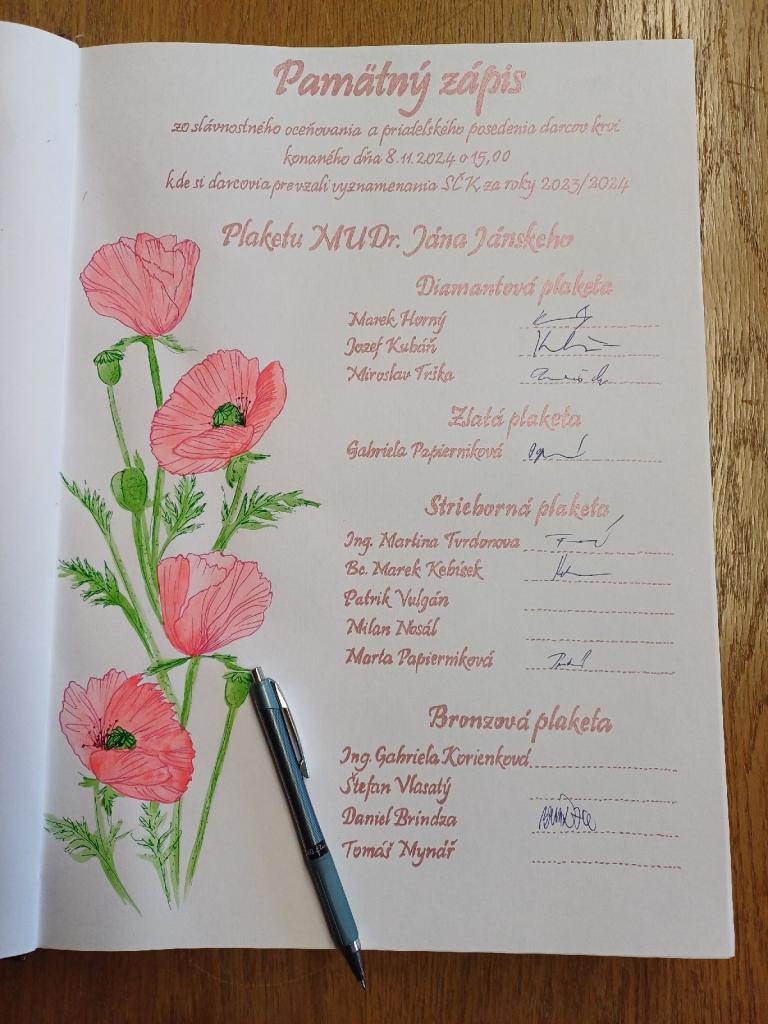 Pamätný zápis
zo slávnostného oceňovania a priateľského posedenia darcov krvi
konaného dňa 8.11.2024 o 15,00
kde si darcovia prevzali vyznamenania SČK za roky 2023/2024
Plaketu MUDr. Jána Jánskeho
Diamantová plaketa
Marek Horný
Jozef Kubáň
Miroslav Trška
Zlatá plaketa
Gabriela Papierniková
Strieborná plaketa
Ing. Martina Tvrdonova
Bc. Marek Kebísek
Patrik Vulgán
Milan Nosál
Marta Papierniková
Bronzová plaketa
Ing. Gabriela Korienková
Štefan Vlasatý
Daniel Brindza
Tomáš Mynář